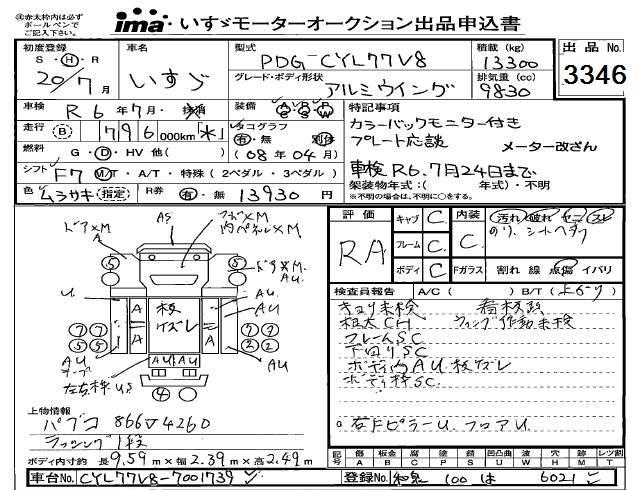 ㊟赤太枠内は必ず
ボールペンで
ご記入下さい。
ima いすゞモーターオークション出品申込書
初度登録
S・Ⓗ・R
20年7月
車名
いすゞ
型式
PDG-CYL77V8
グレード・ボディ形状
アルミウイング
積載 (kg)
13300
排気量 (cc)
9830
出品 No.
3346
車検 R 6年7月・抹消
走行 Ⓑ 796,000km「水」
燃料 G・Ⓓ・HV 他( )
シフト F7 MT・A/T・特殊 (2ペダル・3ペダル)
色 ムラサキ(指定) R券 有・無 13930 円
装備 A/C P/S P/W
タコグラフ
有・無 別体
(08年04月)
特記事項
カラーバックモニター付き
プレート応談
メーター改ざん
車検R6.7月24日まで
架装物年式:( 年式)・不明
※不明の場合は、不明に○をする。
ドア×M
A
AS
内パネル×M
ドア×M
AU
U
A
板ズレ
AU
左右枠US
評価
RA
キャブ C
フレーム C
ボディ C
内装 C
汚れ 破れ コゲ スレ
のり、シートヘタリ
Fガラス 割れ 線 点傷 イバリ
検査員報告 A/C ( ) B/T (上がり)
キョリ未検 看板跡
根太CH ウィング作動未検
フレームSC
下回りSC
ボディ内AU、板ズレ
ボディ枠SC
右FピラーU フロアU
上物情報
パブコ 866▽4260
ラッシング1段
ボディ内寸約 長9.59m×幅2.39m×高2.49m
記号 傷 A 板金 B 腐 C 塗 P 錆 S 凹 U 波 W 穴 H 時 M レツ割 T
車台No. CYL77V8-7001739
登録No. 和泉 100 は 6021